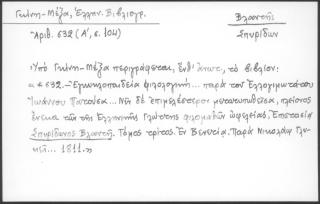 Γκίνη-Μέξα, Ἑλλην. Βιβλιογρ.
Βλαντῆς
Ἀριθ. 632 (Α', σ. 104)
Σπυρίδων
Ὑπὸ Γκίνη-Μέξα περιγράφεται, ἔνθ' ἀνωτ., τὸ βιβλίον:
«632.- Ἐγκυκλοπαιδεία φιλολογική... παρὰ τοῦ Ἐλλογιμωτάτου
Ἰωάννου Πατούσα... Νῦν δὲ ἐπιμελέστερον μετατυπωθεῖσα, πλείστης
ἕνεκα τῶν τῆς Ἑλληνικῆς Γλώττης φιλομαθῶν ὠφελείας, Ἐπιστασίᾳ
Σπυρίδωνος Βλαντῆ. Τόμος τρίτος. Ἐν Βενετίᾳ. Παρὰ Νικολάῳ Γλυ-
κεῖ... 1811.»